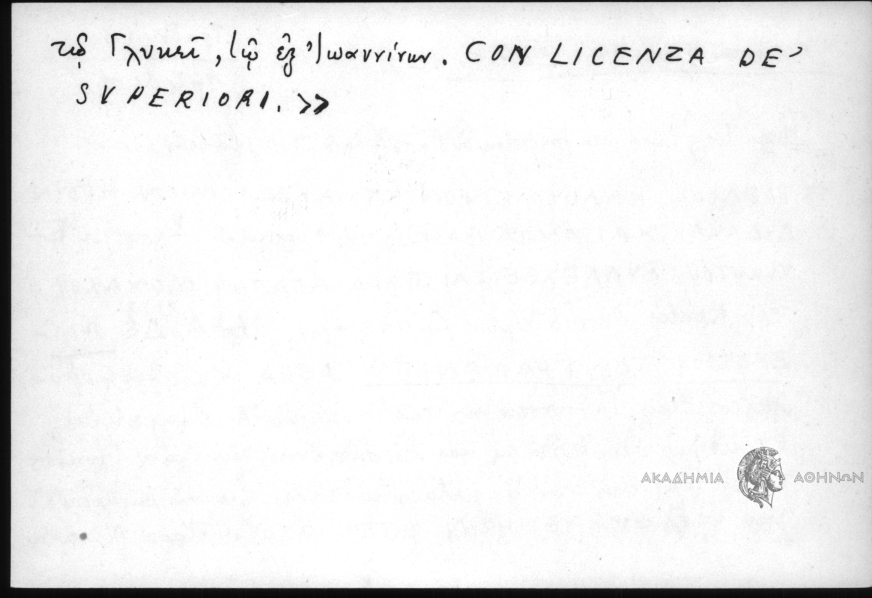 τῷ Γλυκεῖ, τῷ ἐξ Ἰωαννίνων. CON LICENZA DE'
SVPERIORI. >>
ΑΚΑΔΗΜΙΑ ΑΘΗΝΩΝ